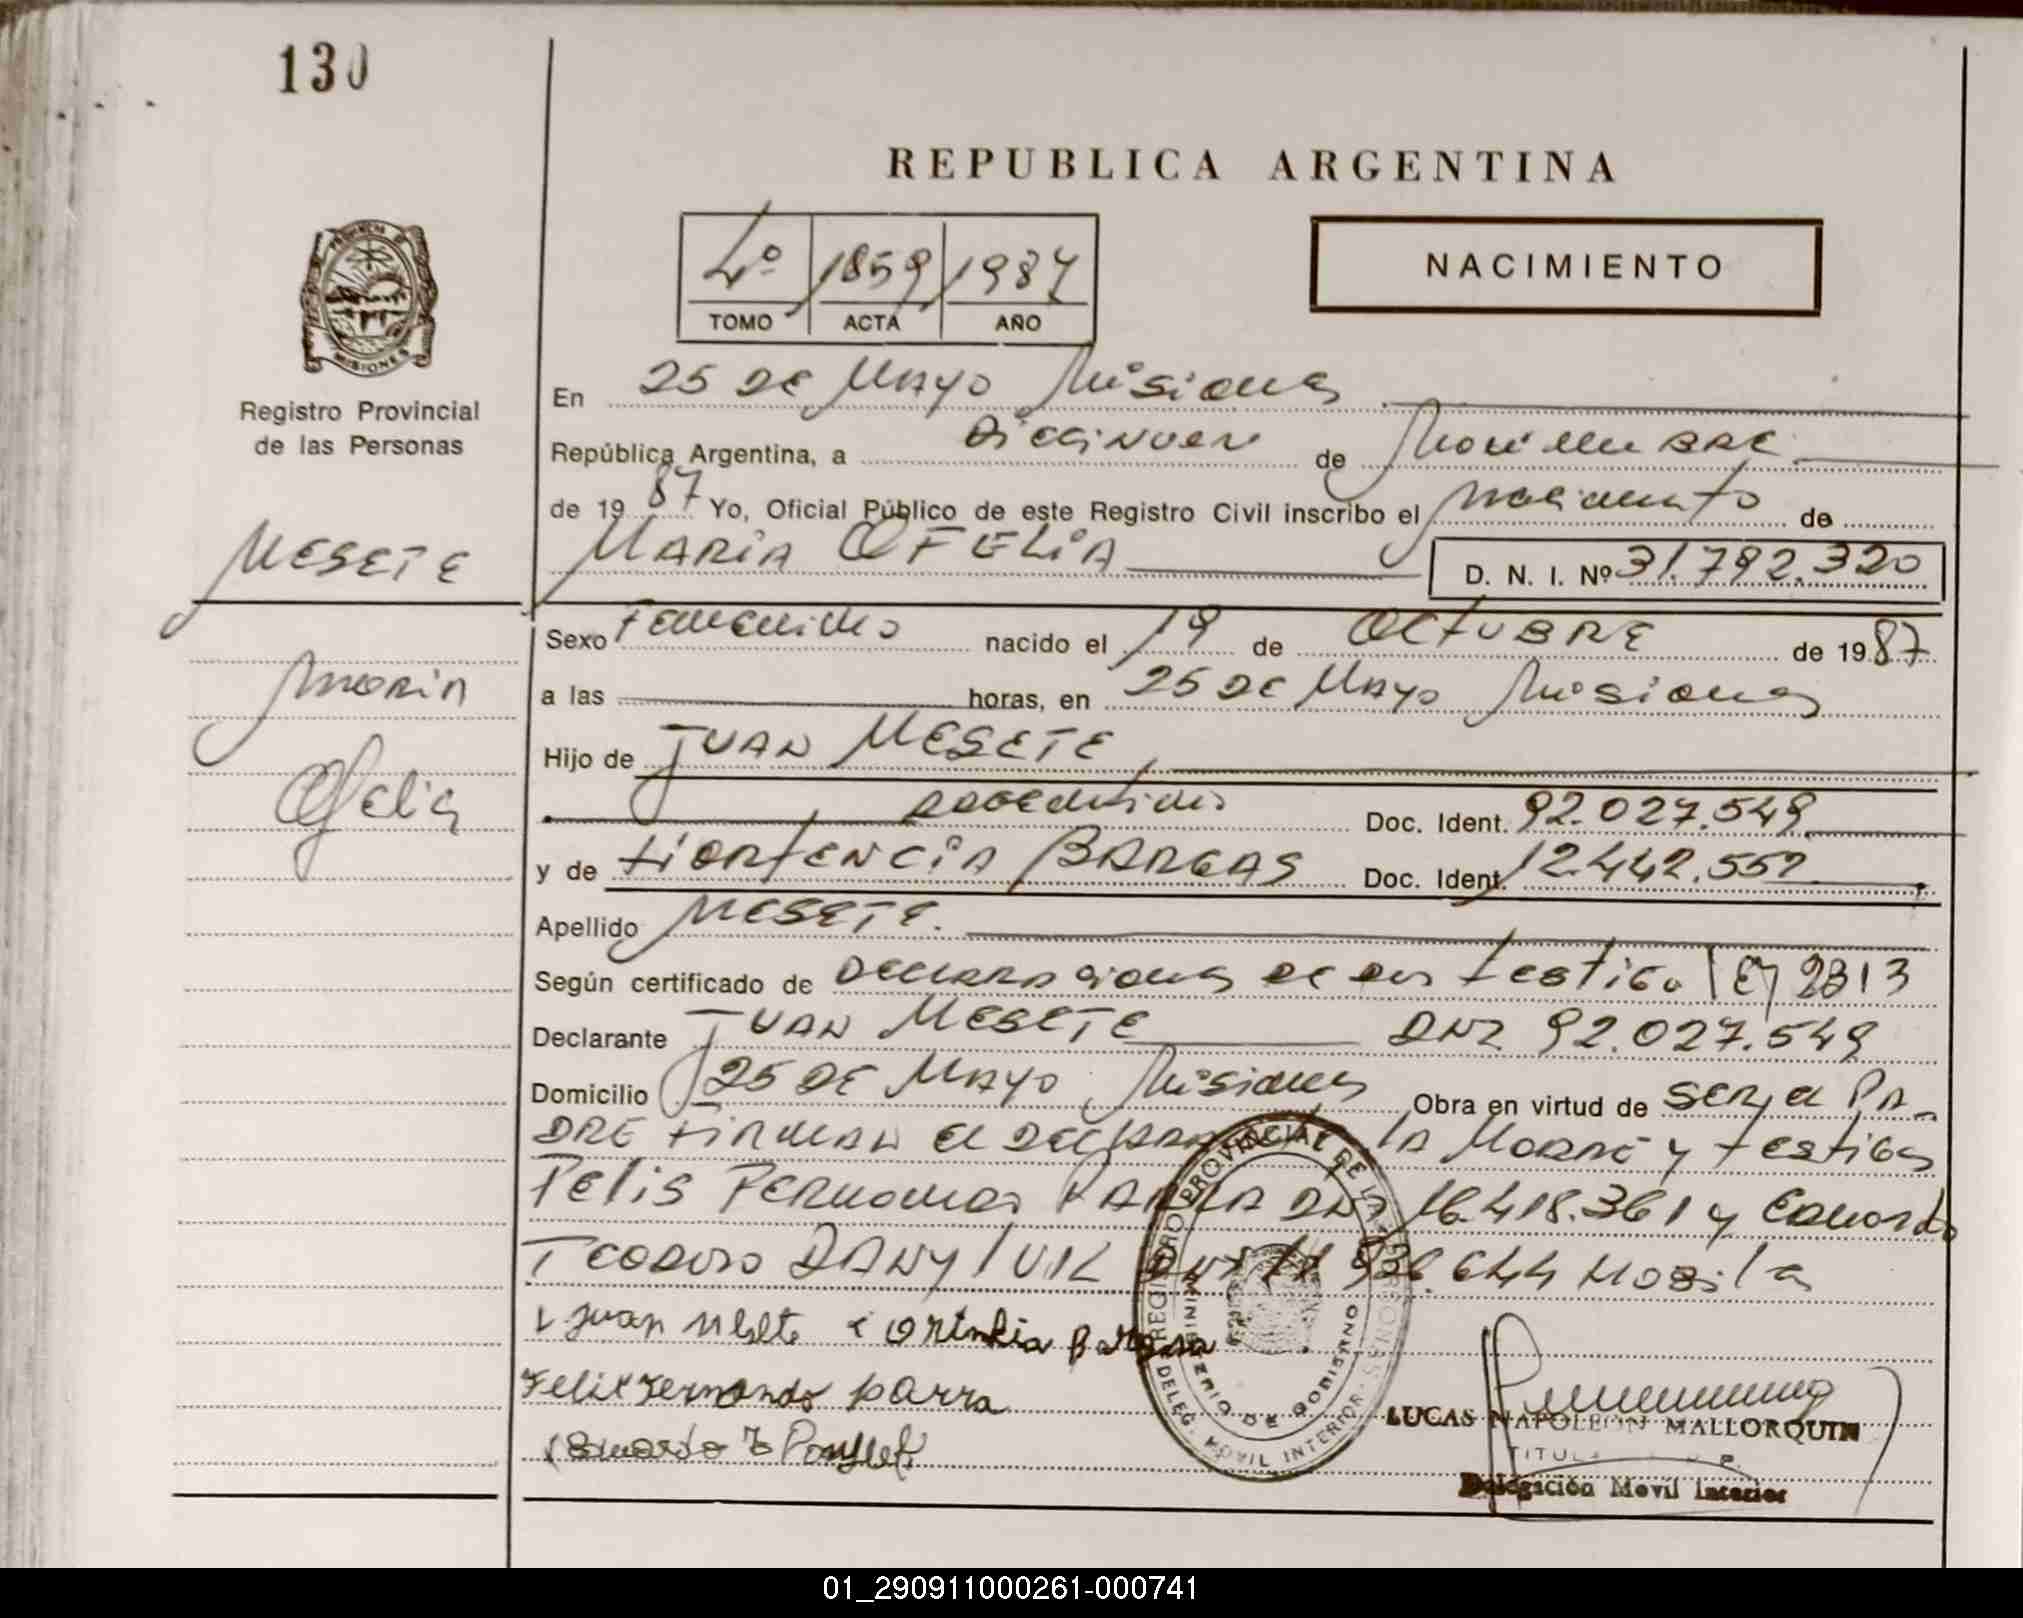 130
REPUBLICA ARGENTINA
4º 1859 1987
TOMO ACTA AÑO
NACIMIENTO
PROVINCIA DE
MISIONES
Registro Provincial
de las Personas
MESETE
Maria
Ofelia
En 25 DE MAYO Misiones
República Argentina, a Diecinueve de Noviembre
de 1987 Yo, Oficial Público de este Registro Civil inscribo el nacimiento de
MARIA OFELIA D. N. I. Nº 31.792.320
Sexo Femenino nacido el 19 de OCTUBRE de 1987
a las horas, en 25 DE MAYO Misiones
Hijo de JUAN MESETE
Doc. Ident. 92.027.549
y de HORTENCIA BARGAS Doc. Ident. 12.442.552
Apellido MESETE.
Según certificado de Declaraciones de dos testigos 2313
Declarante JUAN MESETE DNI 92.027.549
Domicilio 25 DE MAYO Misiones Obra en virtud de ser el PA-
DRE Firman el declarante LA Madre y testigos
Felis Fernando PARRA DNI 16.418.361 y Eduardo
Teodoro DANYLUK DNI 926.644 Mobil
Juan Mesete
Felix Fernando parra
Eduardo T
REGISTRO PROVINCIAL DE LAS PERSONAS
MINISTERIO DE GOBIERNO
DELEG. MOVIL INTERIOR
LUCAS NAPOLEON MALLORQUIN
TITULAR
Delegación Movil Interior
01_290911000261-000741